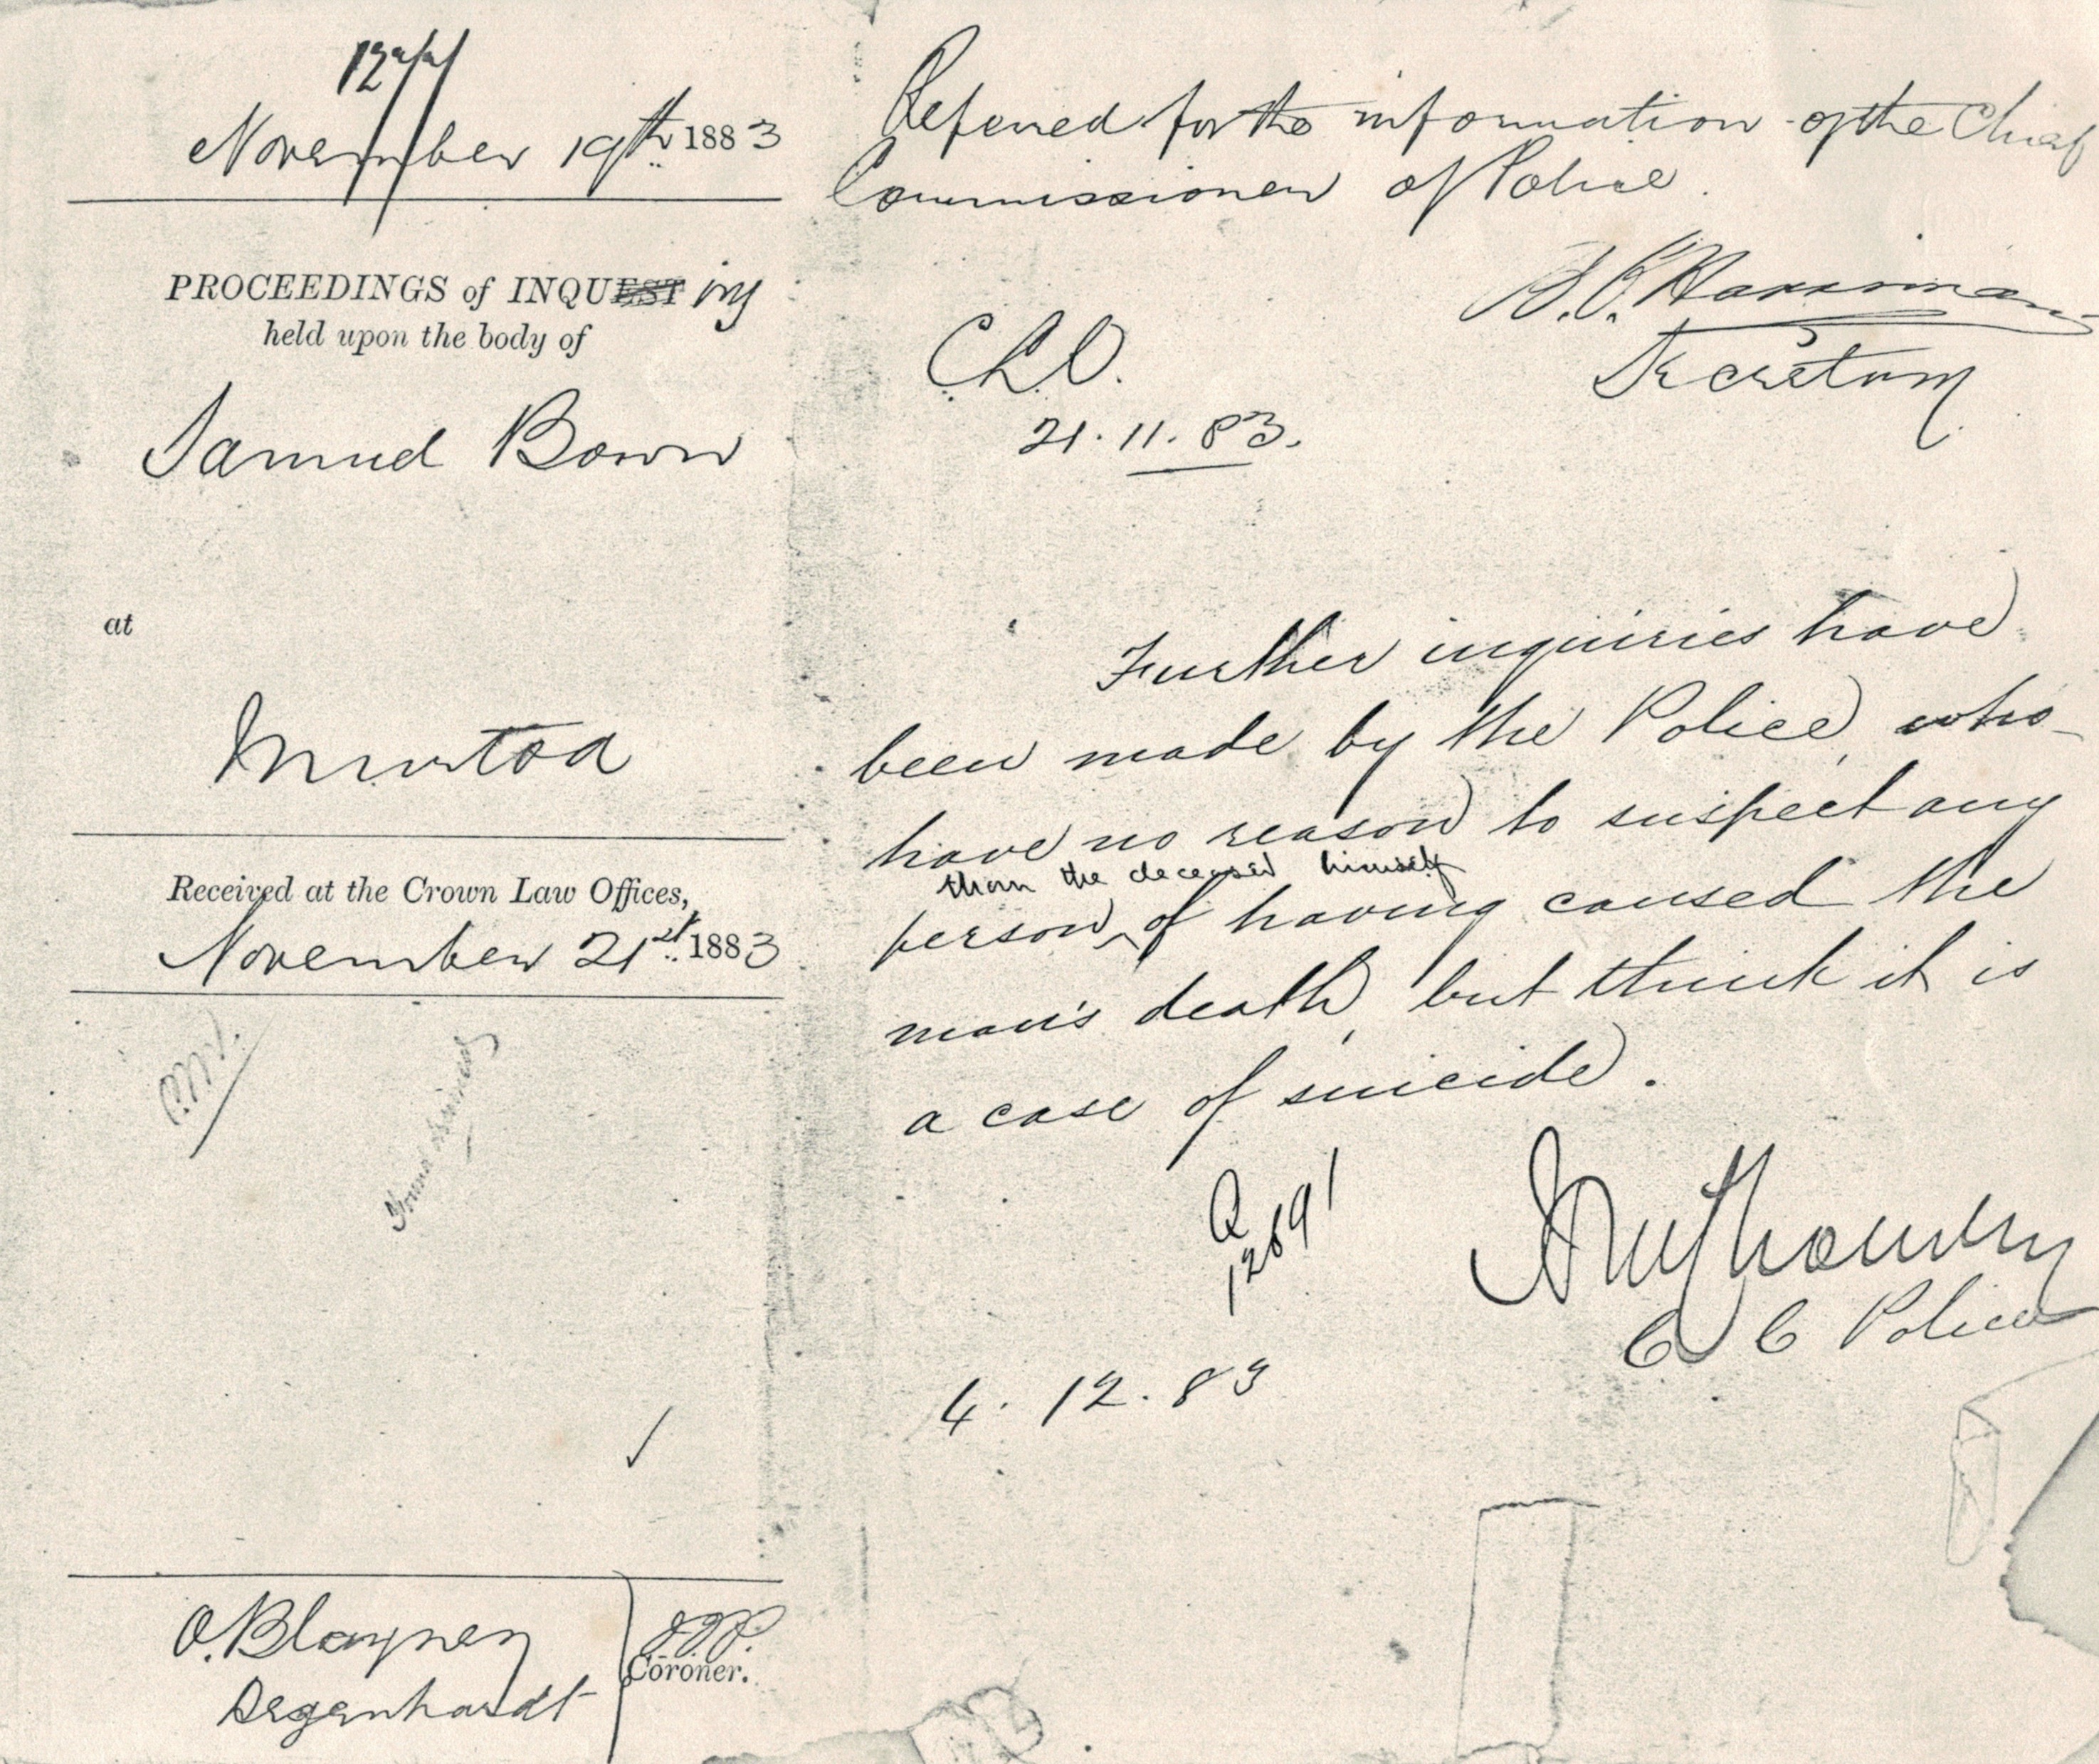 November 19th 1883
PROCEEDINGS of INQUEST iry
held upon the body of
Samuel Bown
at
Murtoa
Received at the Crown Law Offices,
November 21st 1883
O. Blayney
Degenhardt
J.J.P.
Coroner.
Referred for the information of the Chief
Commissioner of Police.
Harriman
Secretary
C.L.O.
21.11.83.
Further inquiries have
been made by the Police, who
have no reason to suspect any
than the deceased himself
person of having caused the
man's death, but think it is
a case of suicide.
Q
12691
C C Police
4.12.83